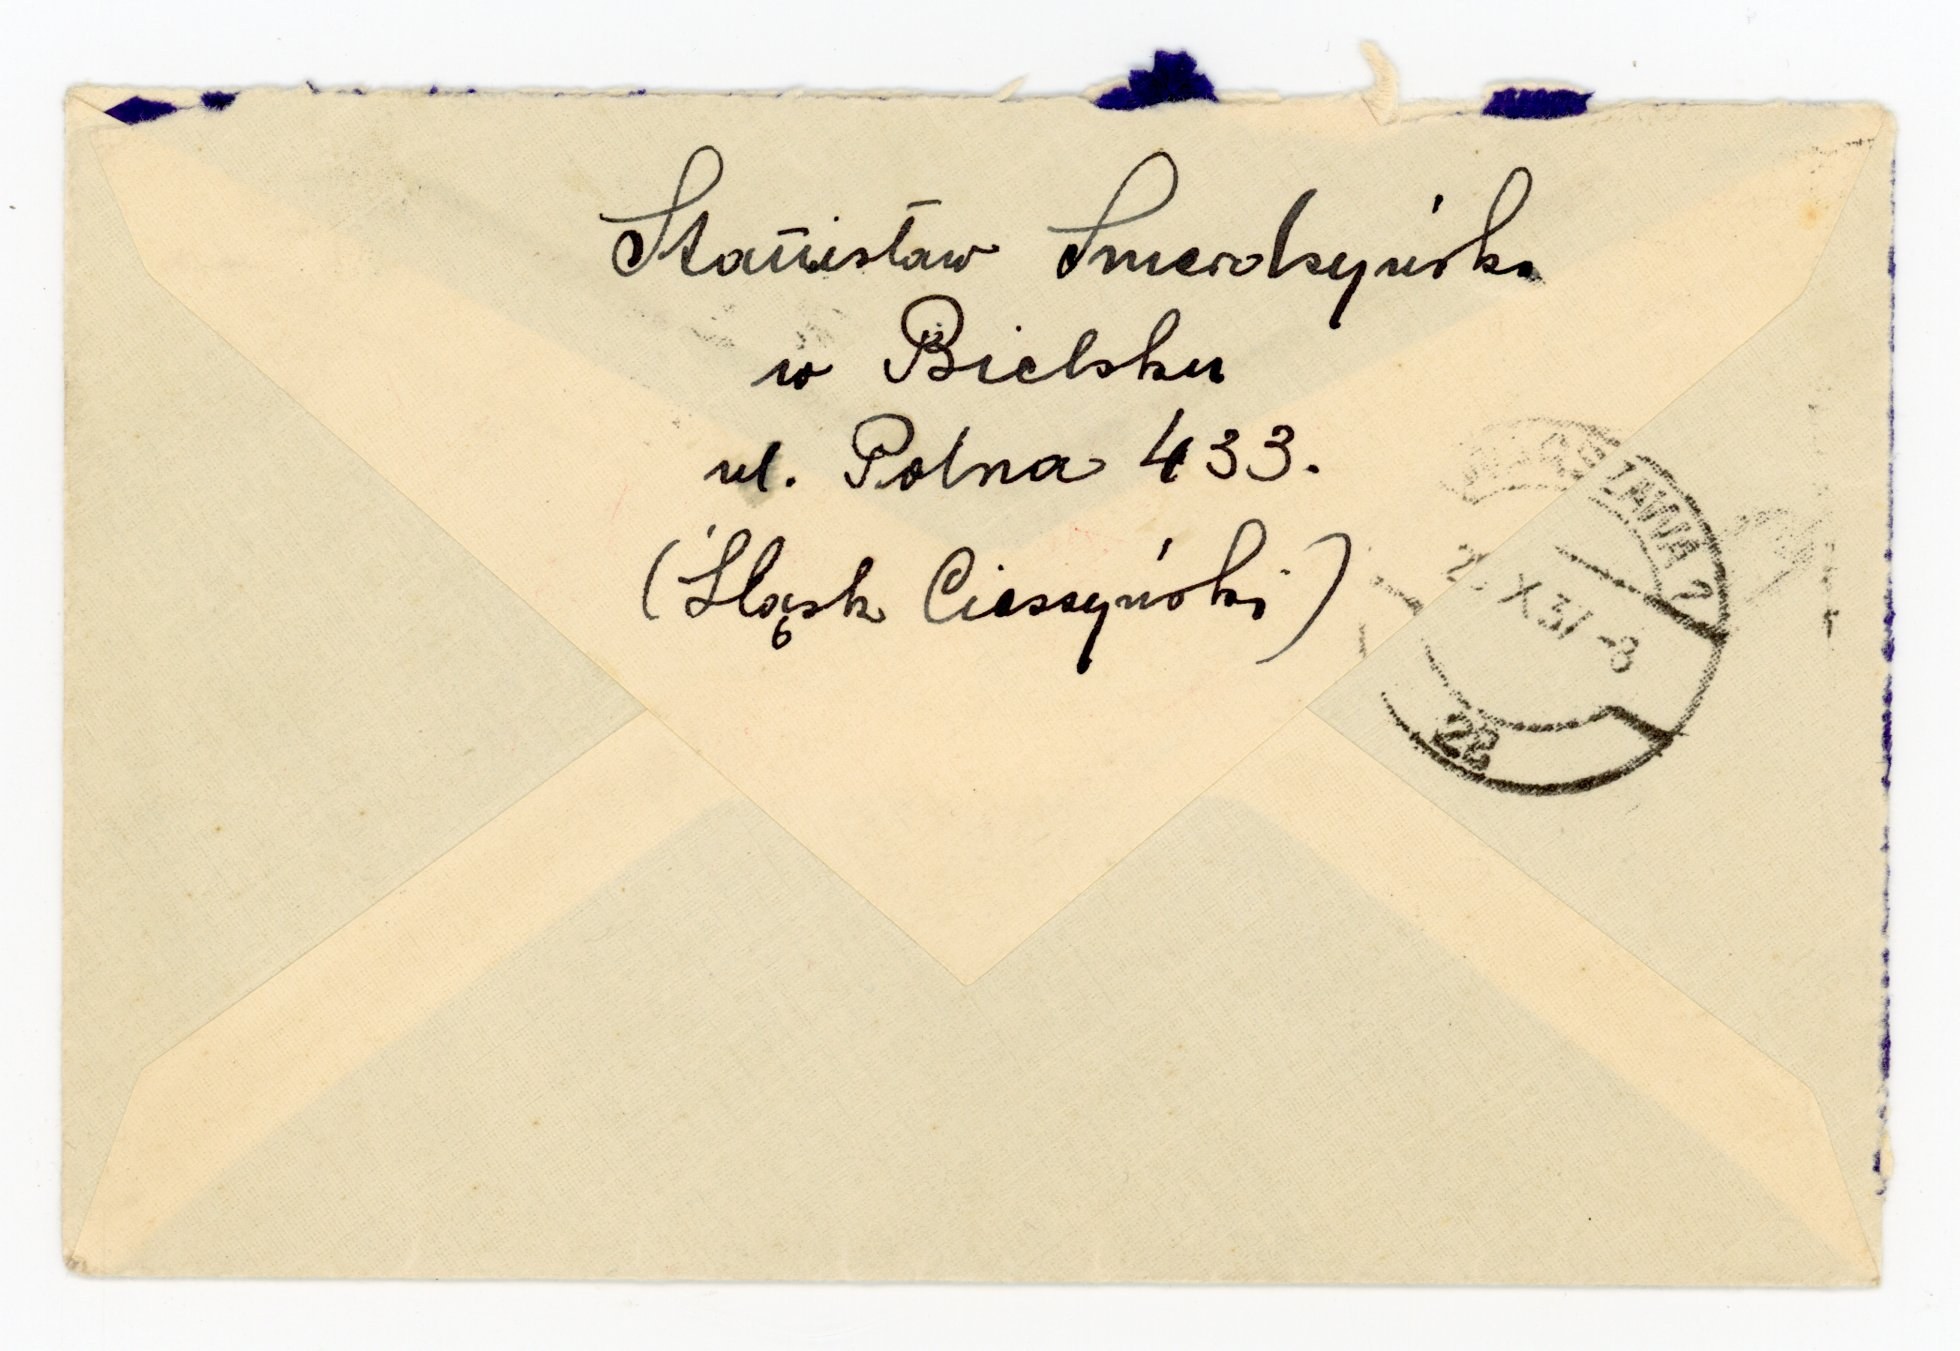 Stanisław Smerdzyński
w Bielsku
ul. Polna 433.
(Śląsk Cieszyński)
WARSZAWA 2
X 37 -8
22